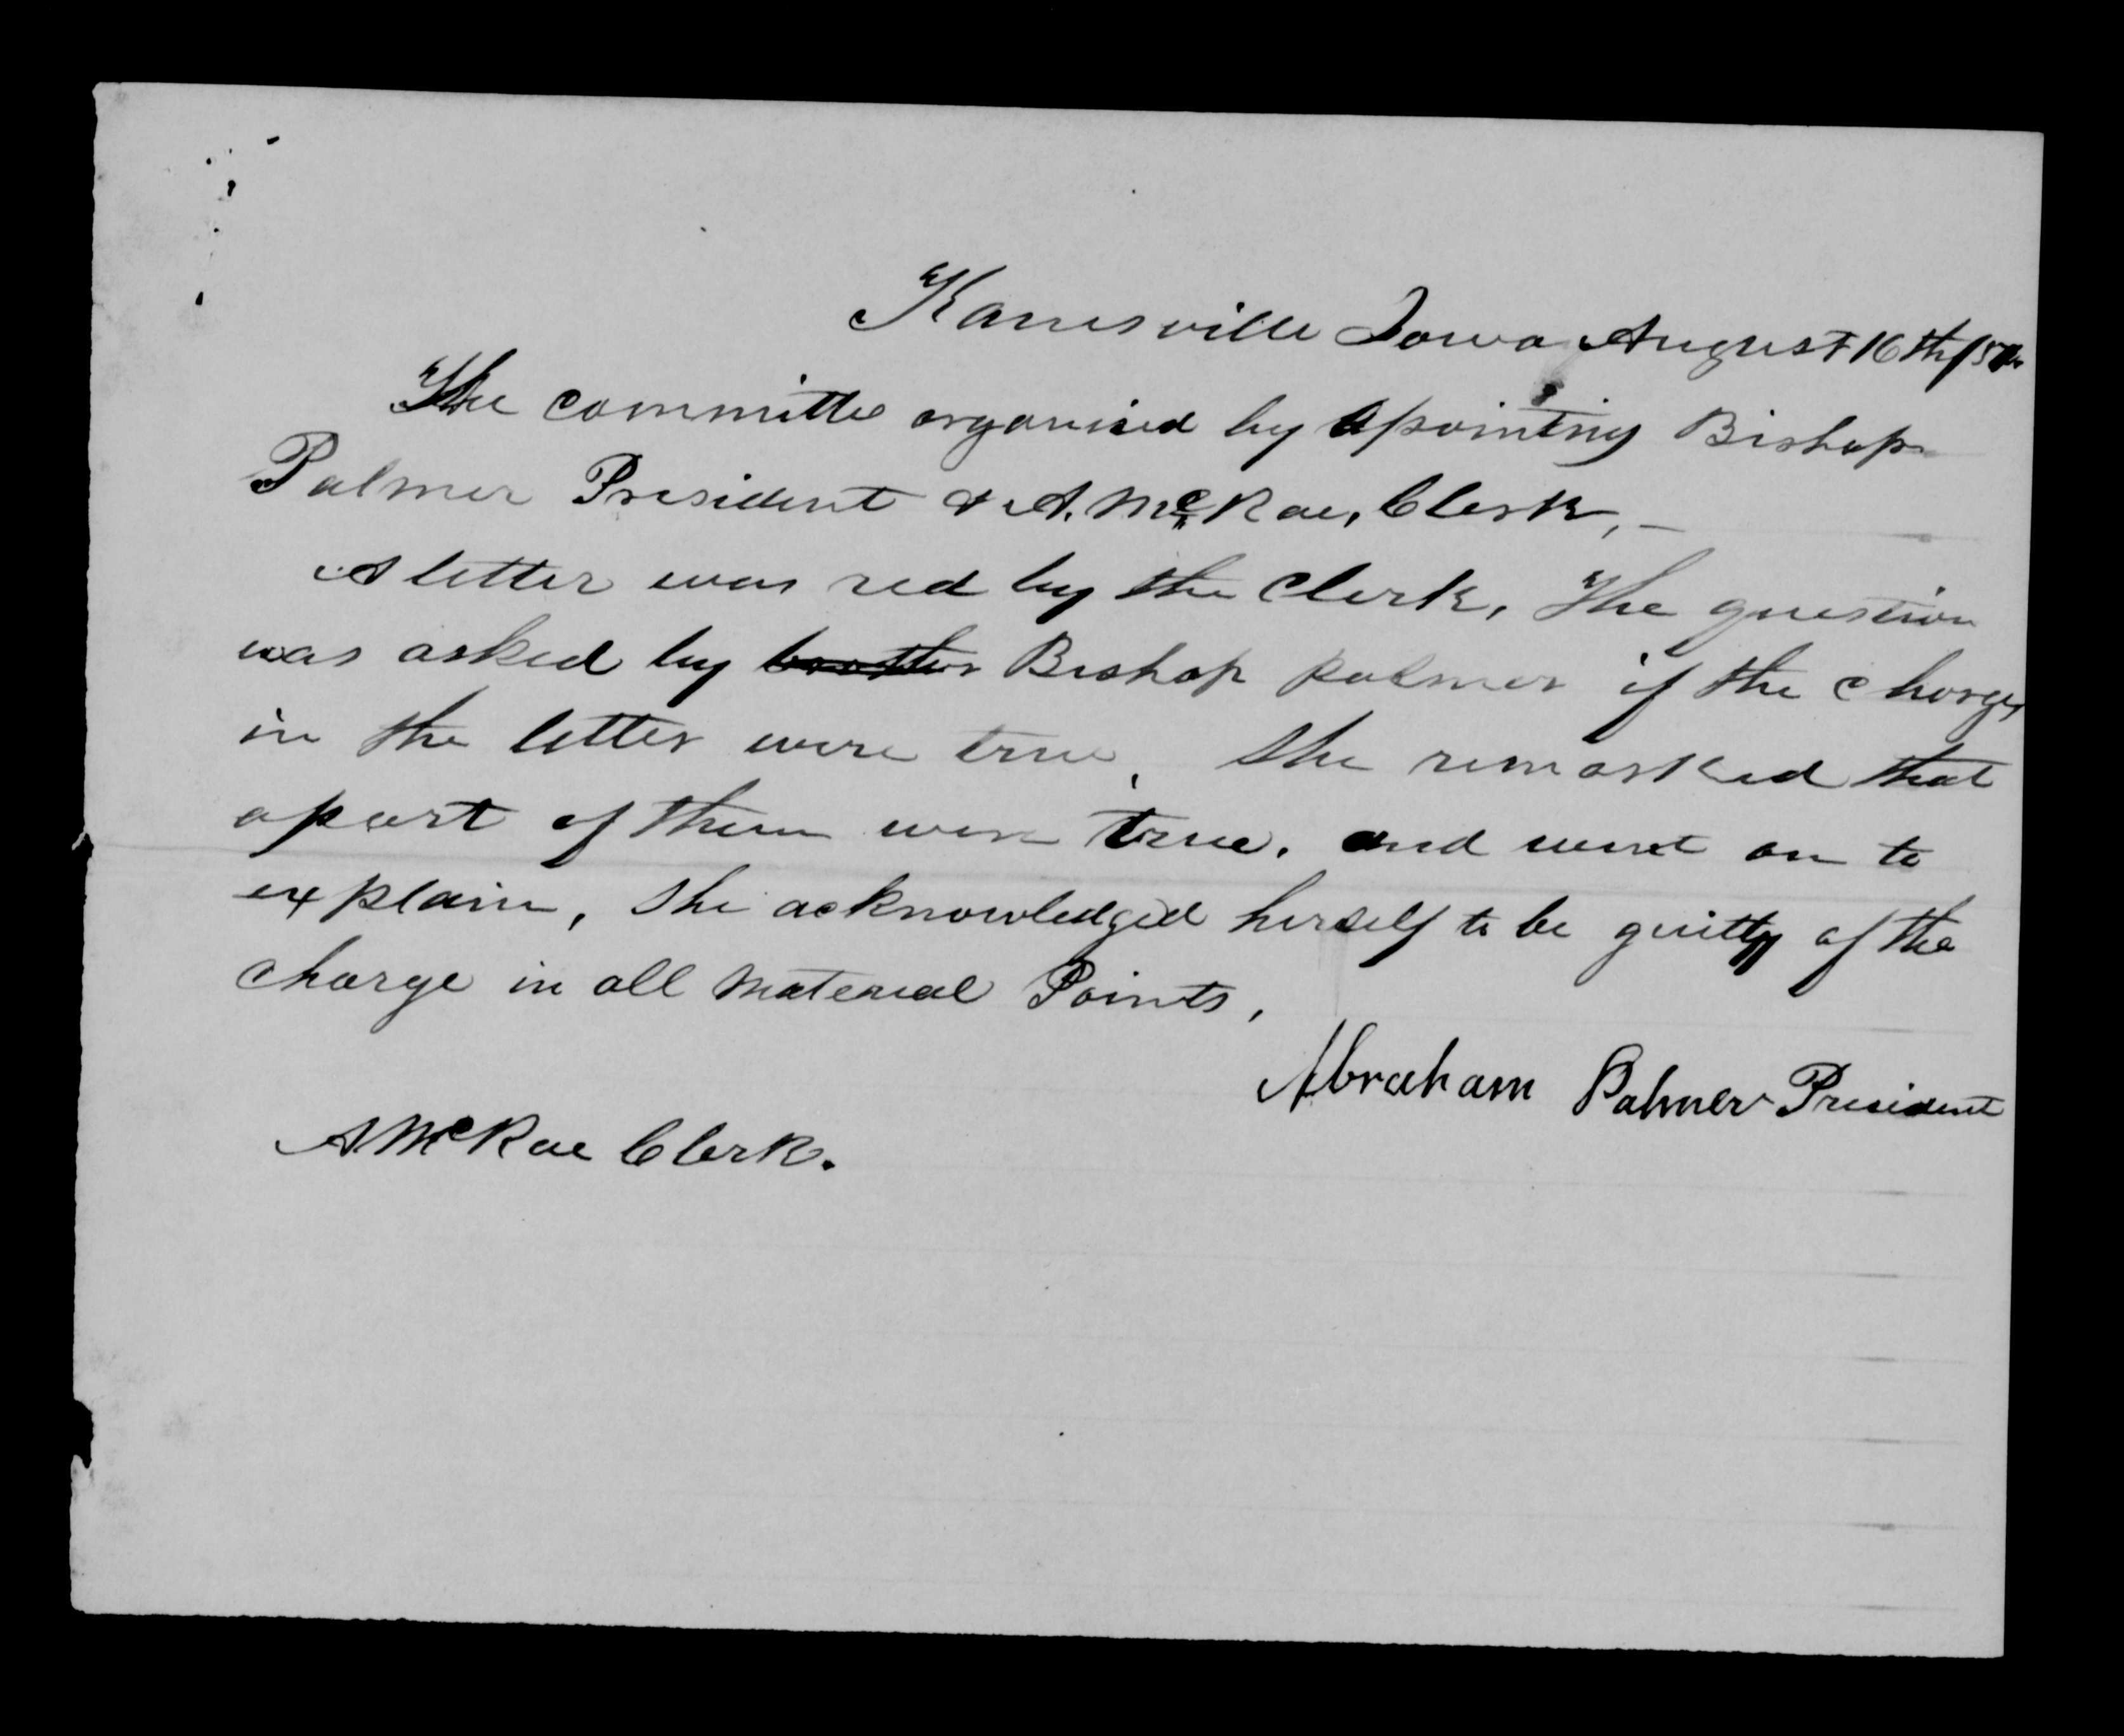 Kanesville Iowa August 16th /50
The committe organised by apointing Bishop
Palmer President & A. McRae, Clerk, —
A letter was red by the Clerk, The question
was asked by brother Bishop Palmer if the charges
in the letter were true, She remarked that
apart of them were true. and went on to
explain, She acknowledged herself to be guilty of the
charge in all material Points,
Abraham Palmer President
A McRae Clerk.